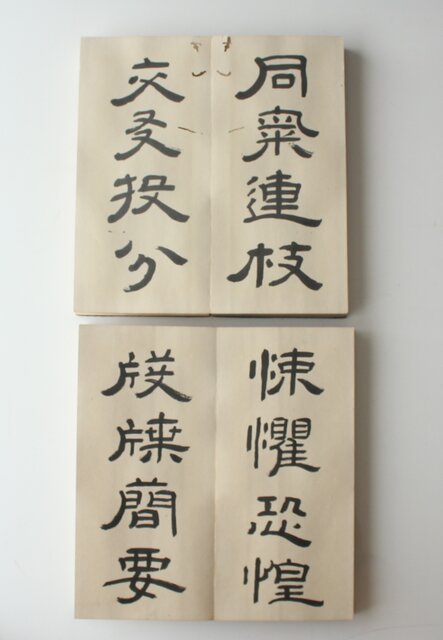 同氣連枝
交友投分
悚懼恐惶
牋牒簡要